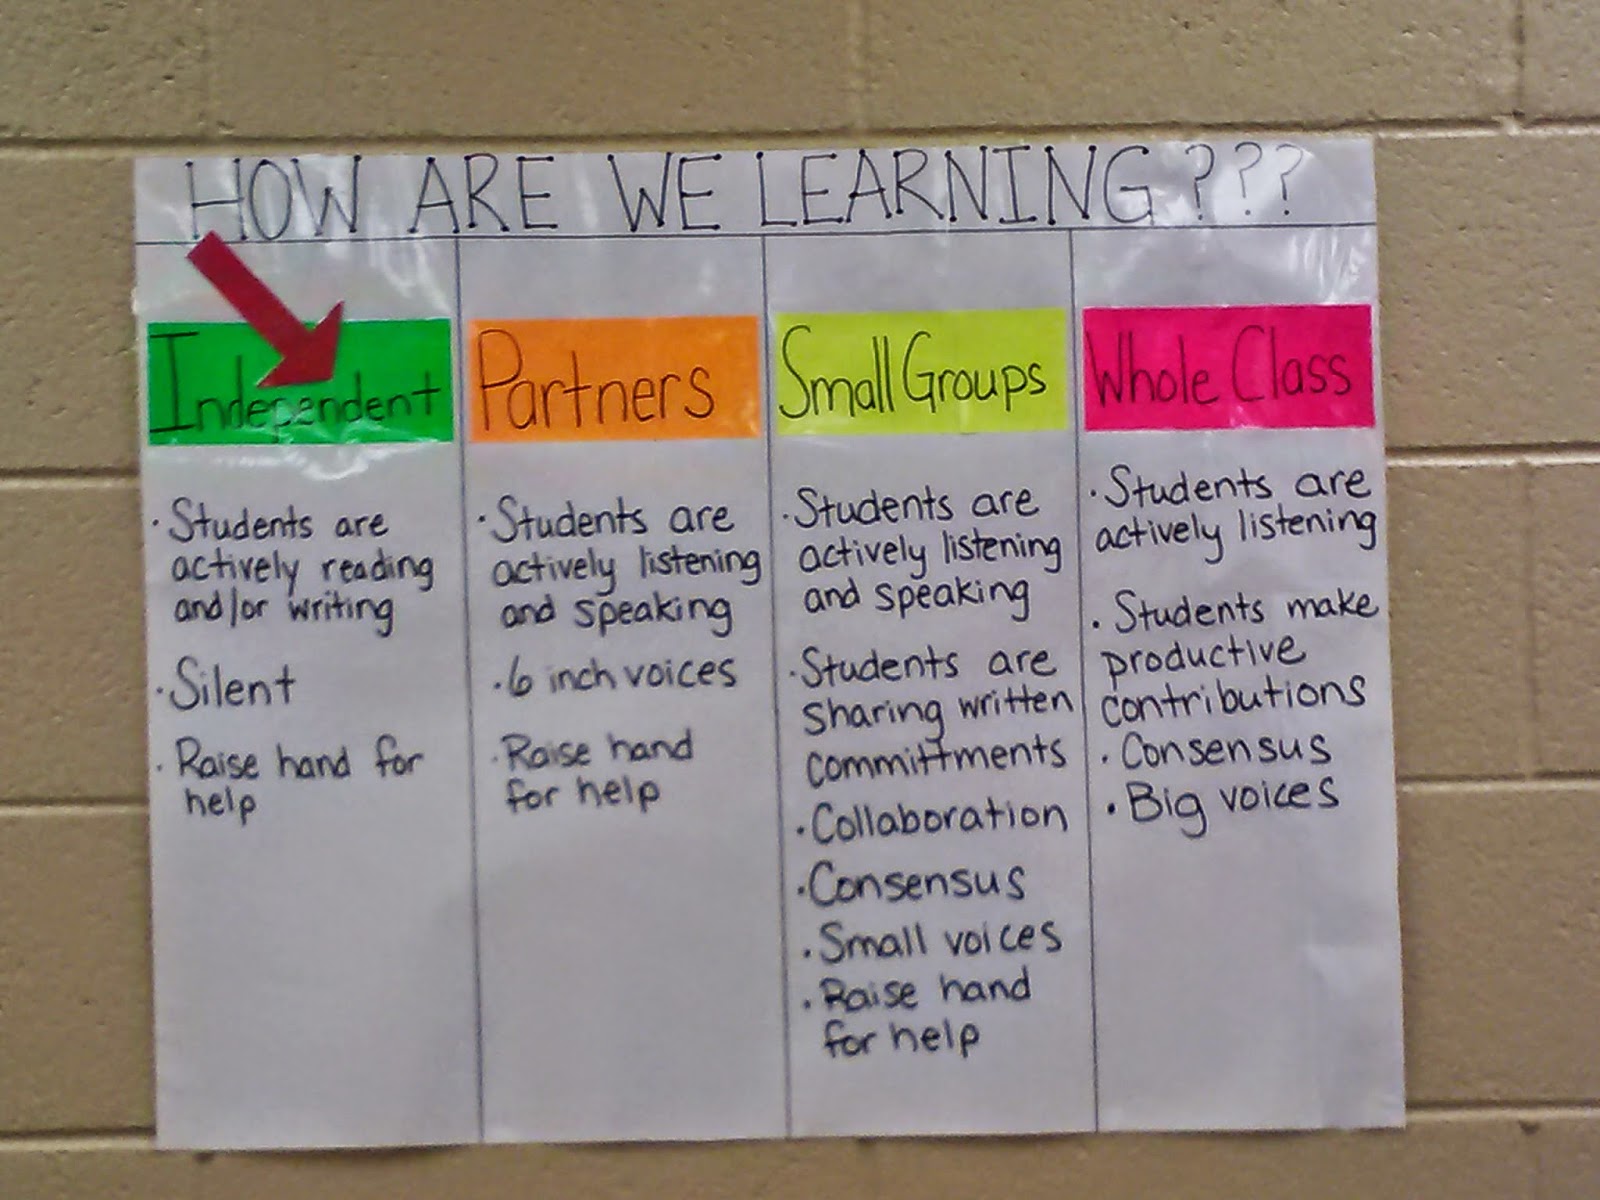 HOW ARE WE LEARNING???
Independent
· Students are
actively reading
and/or writing
· Silent
· Raise hand for
help
Partners
· Students are
actively listening
and speaking
· 6 inch voices
· Raise hand
for help
Small Groups
· Students are
actively listening
and speaking
· Students are
sharing written
committments
· Collaboration
· Consensus
· Small voices
· Raise hand
for help
Whole Class
· Students are
actively listening
· Students make
productive
contributions
· Consensus
· Big voices